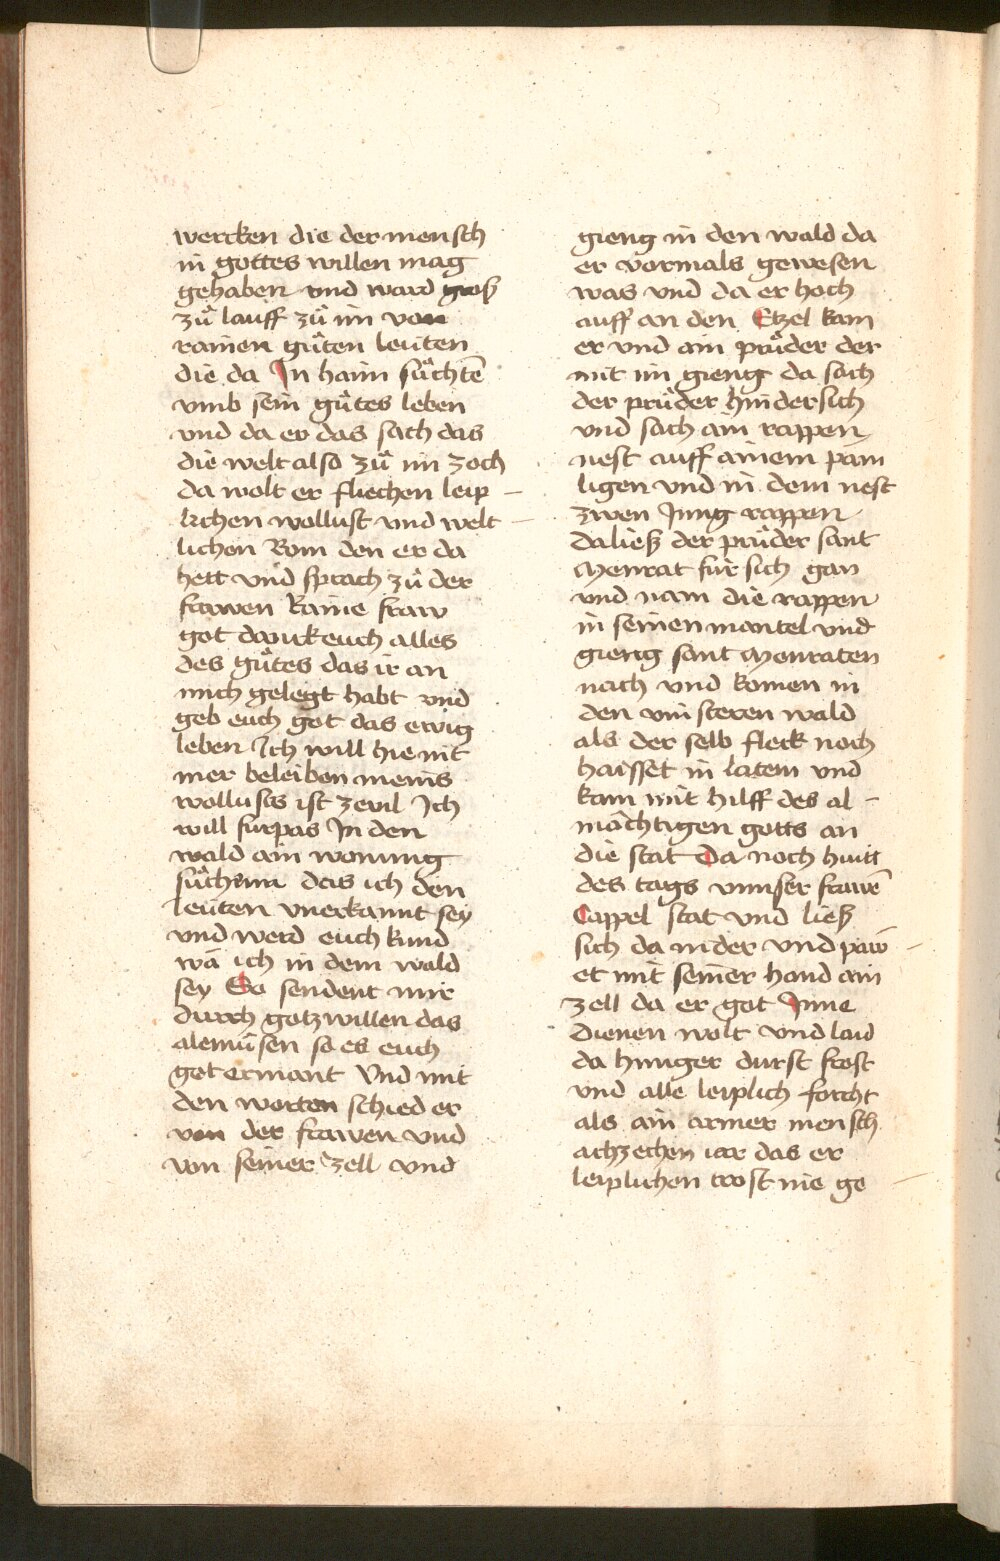 wercken die der mensch
in gottes willen mag
gehaben vnd ward groß
zů lauff zů im von
rainen gůten leuten
die da In haim sůchtē
vmb sein gůtes leben
vnd da er das sach das
die welt also zů im zoch
da wolt er fliechen leip
lichen wollust vnd welt
lichen Rom den er da
hett vnd sprach zů der
frawen Raine fraw
got danck euch alles
des gůtes das ir an
mich gelegt habt vnd
geb euch got das ewig
leben Ich will hie nit
mer beleiben meins
wollusts ist zevil Ich
will furpas In den
wald ain wonung
sůchenn das ich den
leuten vnerkannt sey
vnd werd euch kund
wa ich in dem wald
sey So sendent mir
durch gotz willen das
alemůsen so es euch
got ermant Vnd mit
den worten schied er
von der frawen vnd
von seiner zell vnd
gieng in den wald da
er vormals gewesen
was vnd da er hoch
auff an den Etzel kam
er vnd ain průder der
mit im gieng da sach
der průder hindersich
vnd sach ain rappen
nest auff ainem pam
ligen vnd in dem nest
zwen Jung rappen
da ließ der průder sant
Menrat für sich gan
vnd nam die rappen
in seinen mantel vnd
gieng sant Menraten
nach vnd komen in
den vinsteren wald
als der selb fleck noch
haisset in latein vnd
kam mit hilff des al
mächtigen gotts an
die stat Da noch hiutt
des tags vnnser frawē
Cappel stat vnd ließ
sich da nider vnd paw
et mit seiner hand ain
zell da er got Inne
dienen wolt vnd laid
da hunger durst frost
vnd alle leiplich forcht
als ain armer mensch
achzechen iar das er
leiplichen trost nie ge